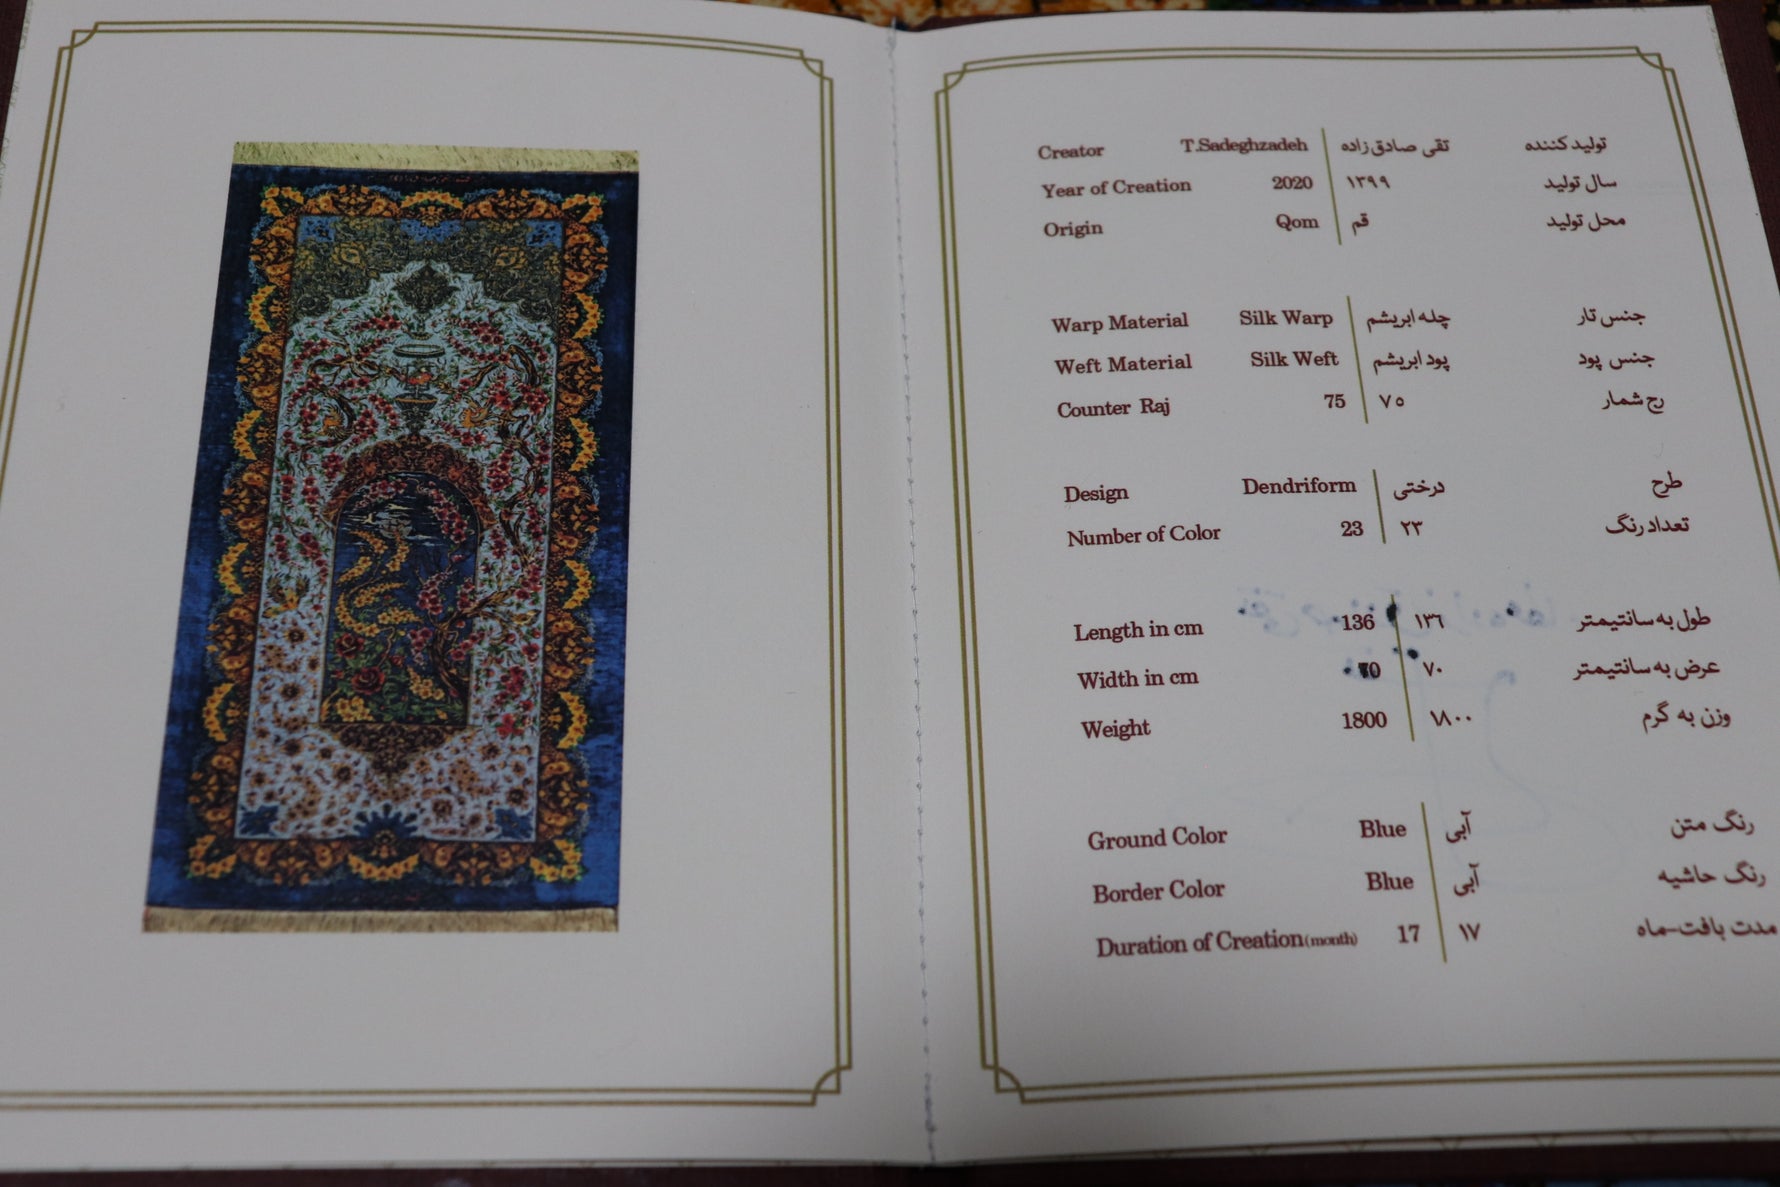 Creator T.Sadeghzadeh تقی صادق زاده تولید کننده
Year of Creation 2020 ۱۳۹۹ سال تولید
Origin Qom قم محل تولید
Warp Material Silk Warp چله ابریشم جنس تار
Weft Material Silk Weft پود ابریشم جنس پود
Counter Raj 75 ۷۵ رج شمار
Design Dendriform درختی طرح
Number of Color 23 ۲۳ تعداد رنگ
Length in cm 136 ۱۳٦ طول به سانتیمتر
Width in cm 70 ۷۰ عرض به سانتیمتر
Weight 1800 ۱۸۰۰ وزن به گرم
Ground Color Blue آبی رنگ متن
Border Color Blue آبی رنگ حاشیه
Duration of Creation(month) 17 ۱۷ مدت بافت-ماه